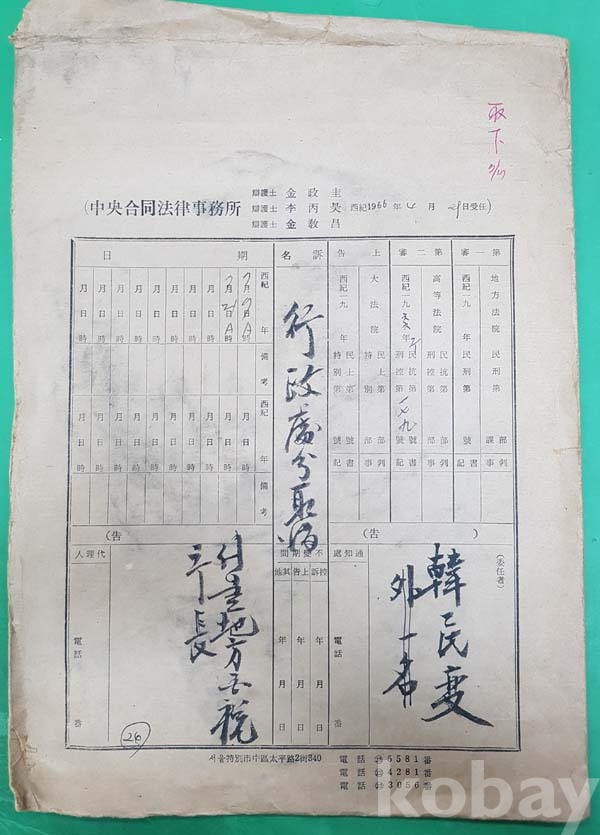 取下
辯護士 金政圭
(中央合同法律事務所 辯護士 李丙昊 西紀1966年4月29日受任)
辯護士 金敎昌
第一審 地方法院 民刑第 部 課
西紀一九 年 民刑第 號
第二審 高等法院 民抗 刑控 第 部
西紀一九 年 民抗 刑控 第 一七九 號
上告 大法院 民上 特別 第 部
西紀一九 年 民上 刑上 特別 第 號
訴名
行政處分取消
期日
西紀 年 備考
月 日 時
西紀 年 備考
月 日 時
(告 )
(委任者)
韓民變
外一名
通知處
電話 番
不變期間
控訴 上告 其他
年 月 日
年 月 日
年 月 日
(告
代理人
서울地方國稅
電話 番
26
서울特別市中區太平路2街340
電話 ② 5581番
電話 ② 4281番
電話 ② 3056番
kobay